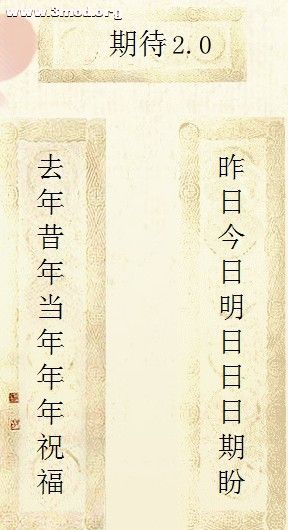 www.3mod.org
期待2.0
昨日今日明日日日期盼
去年昔年当年年年祝福